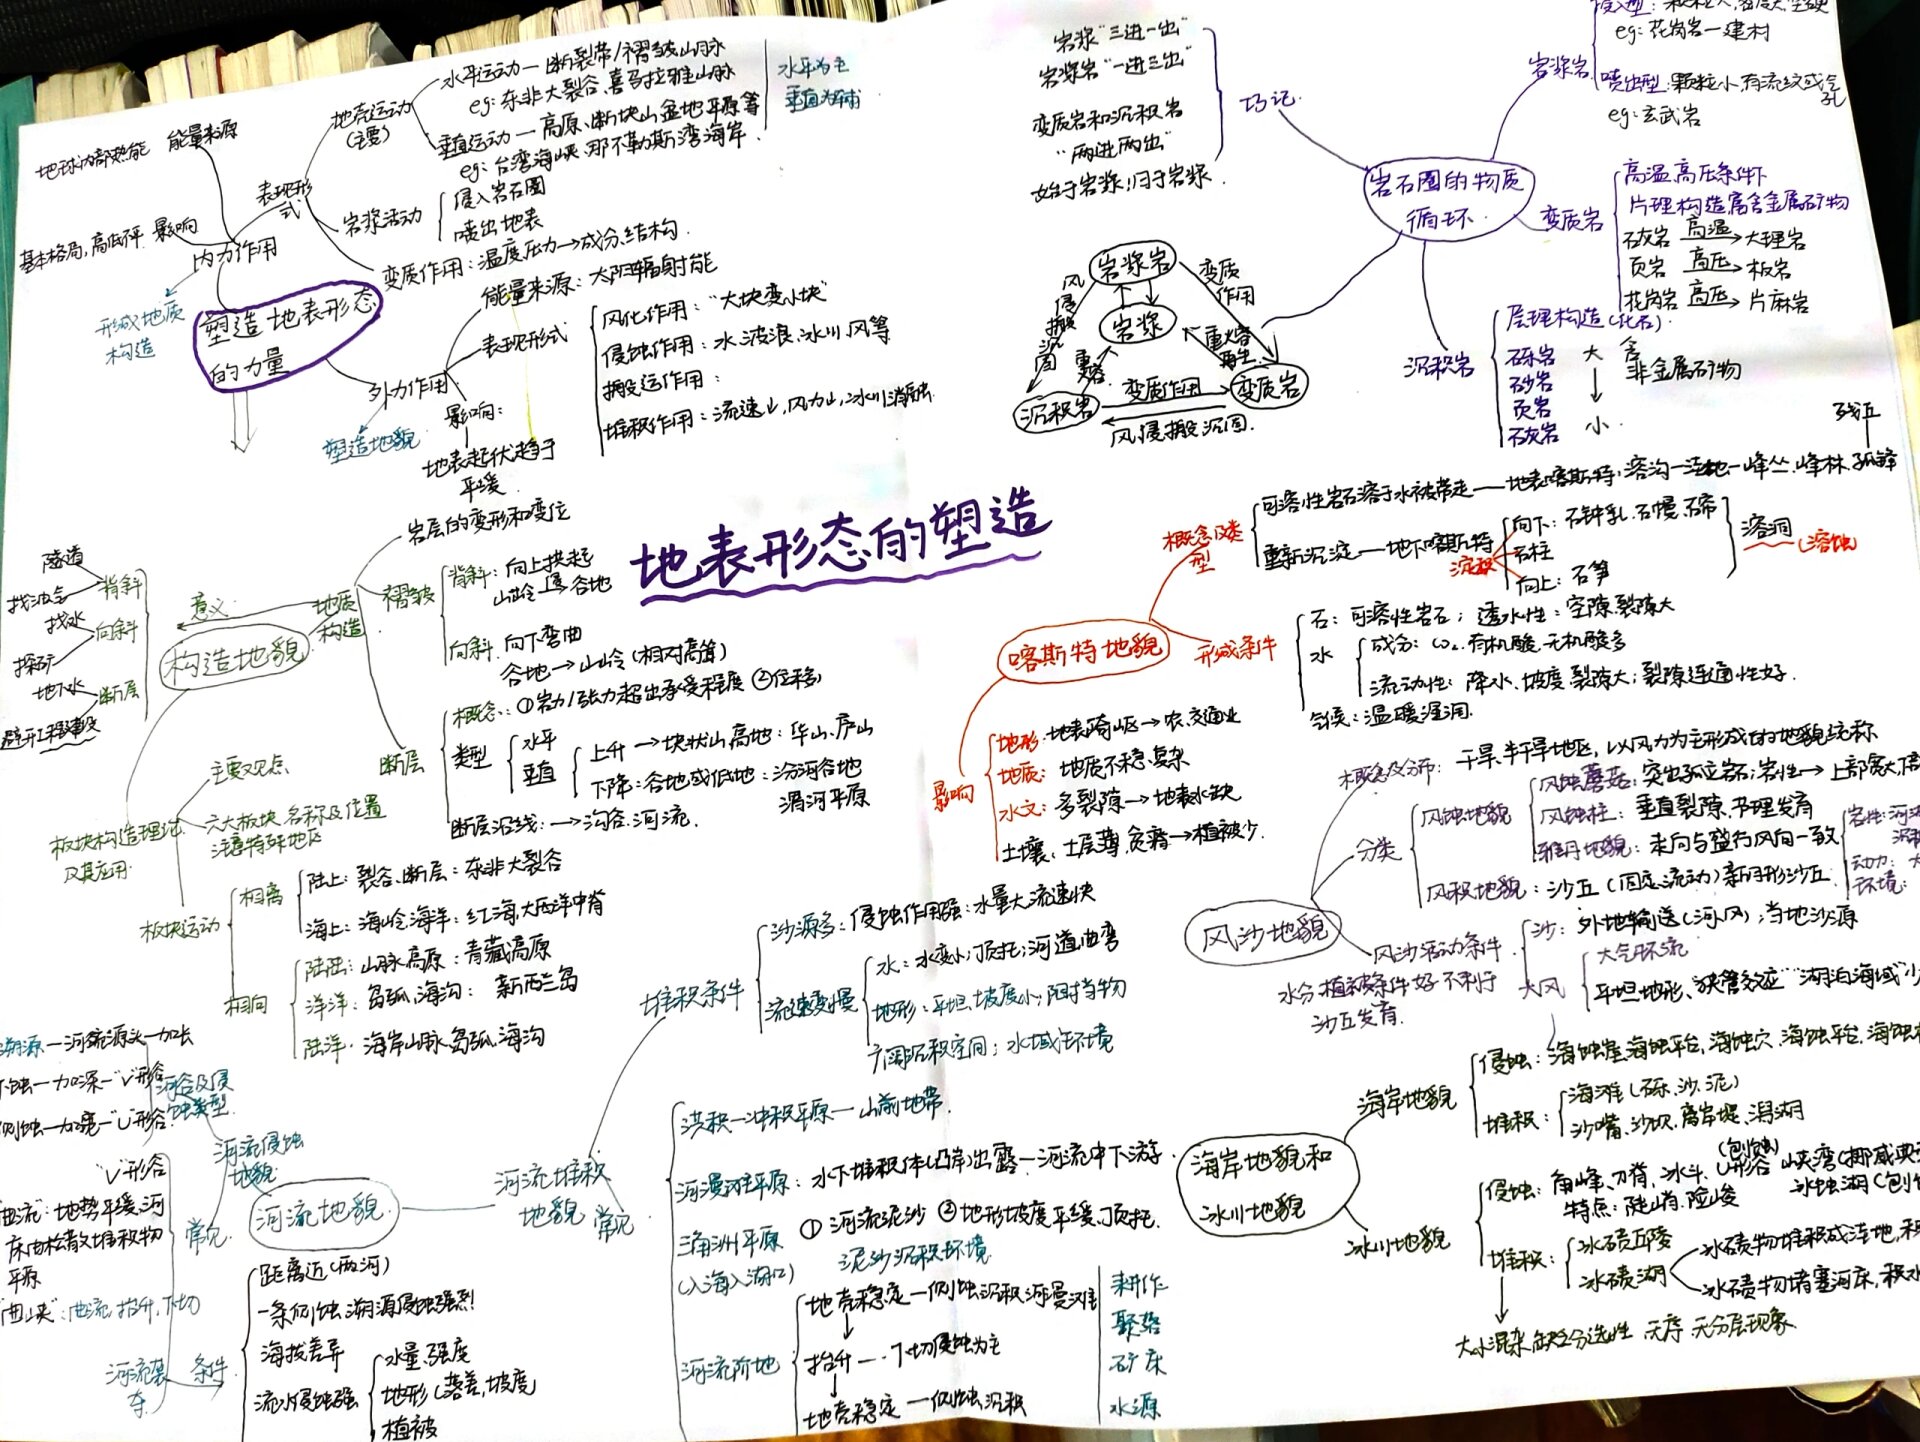 地表形态的塑造
塑造地表形态
的力量
内力作用
能量来源
地球内部热能
影响
基本格局,高低不平
形成地质
构造
表现形
式
地壳运动
(主要)
水平运动—断裂带/褶皱山脉
eg:东非大裂谷、喜马拉雅山脉
垂直运动—高原、断块山盆地平原等
eg:台湾海峡、那不勒斯湾海岸.
水平为主
垂直为辅
岩浆活动
侵入岩石圈
喷出地表
变质作用:温度压力→成分、结构.
外力作用
塑造地貌
能量来源:太阳辐射能
表现形式
风化作用:“大块变小块”
侵蚀作用:水、波浪、冰川、风等
搬运作用:
堆积作用:流速↓,风力↓,冰川消融.
影响:
地表起伏趋于
平缓.
岩石圈的物质
循环.
巧记.
岩浆“三进一出”
岩浆岩“一进三出”
变质岩和沉积岩
“两进两出”
始于岩浆,归于岩浆.
岩浆岩
eg:花岗岩—建材
喷出型:颗粒小,有流纹或气
孔
eg:玄武岩
变质岩
高温高压条件下
片理构造,富含金属矿物
石灰岩 高温→大理岩
页岩 高压→板岩
花岗岩 高压→片麻岩
沉积岩
层理构造(化石).
砾岩 大
砂岩 ↓
页岩
石灰岩 小
含
非金属矿物
岩浆岩
岩浆
沉积岩
变质岩
变质
作用
重熔
再生
变质作用
风侵搬沉固.
风侵搬沉固
重熔.
构造地貌
意义
地质
构造
岩层的变形和变位
褶皱
背斜:向上拱起
山岭→谷地
向斜.向下弯曲
谷地→山岭(相对高耸)
断层
概念:①岩力/张力超出承受程度 ②位移
类型
水平
垂直
上升→块状山、高地:华山、庐山
下降:谷地或低地:汾河谷地
渭河平原
断层沿线:→沟谷.河流.
背斜
隧道
找油气
向斜
找水
探矿
断层
地下水
避开工程建设
板块构造理论
及其应用.
主要观点
六大板块.名称及位置
注意特殊地区
板块运动
相离
陆上:裂谷、断层:东非大裂谷
海上:海岭海洋:红海、大西洋中脊
相向
陆陆:山脉高原:青藏高原
洋洋:岛弧、海沟:新西兰岛
陆洋:海岸山脉、岛弧、海沟
喀斯特地貌
概念及类
型
可溶性岩石溶于水被带走—地表喀斯特:溶沟—洼地—峰丛、峰林、孤峰
残丘
重新沉淀—地下喀斯特
沉积
向下:石钟乳、石幔、石帘
石柱
向上:石笋
溶洞
(溶蚀)
形成条件
石:可溶性岩石;透水性:空隙、裂隙大
水
成分:CO₂、有机酸、无机酸多
流动性:降水、坡度、裂隙大;裂隙连通性好.
气候:温暖湿润.
影响
地形:地表崎岖→农、交通业
地质:地质不稳、复杂
水文:多裂隙→地表水缺
土壤:土层薄,贫瘠→植被少.
风沙地貌
概念及分布:干旱、半干旱地区,以风力为主形成的地貌统称
分类
风蚀地貌
风蚀蘑菇:突出孤立岩石;岩性→上部宽大,
风蚀柱:垂直裂隙、节理发育
雅丹地貌:走向与盛行风向一致
动力:
环境:
风积地貌:沙丘(固定、流动)新月形沙丘
风沙活动条件
沙:外地输送(河、风);当地沙源
大风
大气环流
平坦地形、“狭管效应”“湖泊海域”少
水分、植被条件好不利于
沙丘发育.
海岸地貌和
冰川地貌
海岸地貌
侵蚀:海蚀崖、海蚀平台、海蚀穴、海蚀平台、
堆积:
海滩(砾、沙、泥)
沙嘴、沙坝、离岸堤、潟湖
冰川地貌
侵蚀:角峰、刃脊、冰斗、U形谷
(刨蚀)
峡湾
冰蚀湖
特点:陡峭、险峻
堆积:
冰碛丘陵
冰碛湖
冰碛物堆积成洼地,
冰碛物堵塞河床,积水
大小混杂,缺乏分选性、无序、无分层现象
河流地貌
河流侵蚀
地貌
河谷及侵
蚀类型.
溯源—河流源头—加长
下蚀—加深—“V”形谷
侧蚀—加宽—“U”形谷
常见
“V”形谷
“曲流”:地势平缓,河
床由松散堆积物
平原
“曲峡”:曲流,抬升,下切
河流袭
夺.
条件
距离近(两河)
一条侧蚀、溯源侵蚀强烈
海拔差异
流水侵蚀强
水量、强度
地形(落差,坡度)
植被
河流堆积
地貌
堆积条件
沙源多:侵蚀作用强:水量大,流速快
流速变慢
水:水变小;顶托;河道曲弯
地形:平坦、坡度小;阻挡物
广阔沉积空间:水域环境
常见
洪积—冲积平原—山前地带.
河漫滩平原:水下堆积体(凸岸)出露—河流中下游.
三角洲平原
(入海入湖口)
①河流泥沙 ②地形坡度平缓,顶托.
泥沙沉积环境
河流阶地
地壳稳定—侧蚀沉积河漫滩
↓
抬升—下切侵蚀为主
↓
地壳稳定—侧蚀沉积
耕作
聚落
矿床
水源